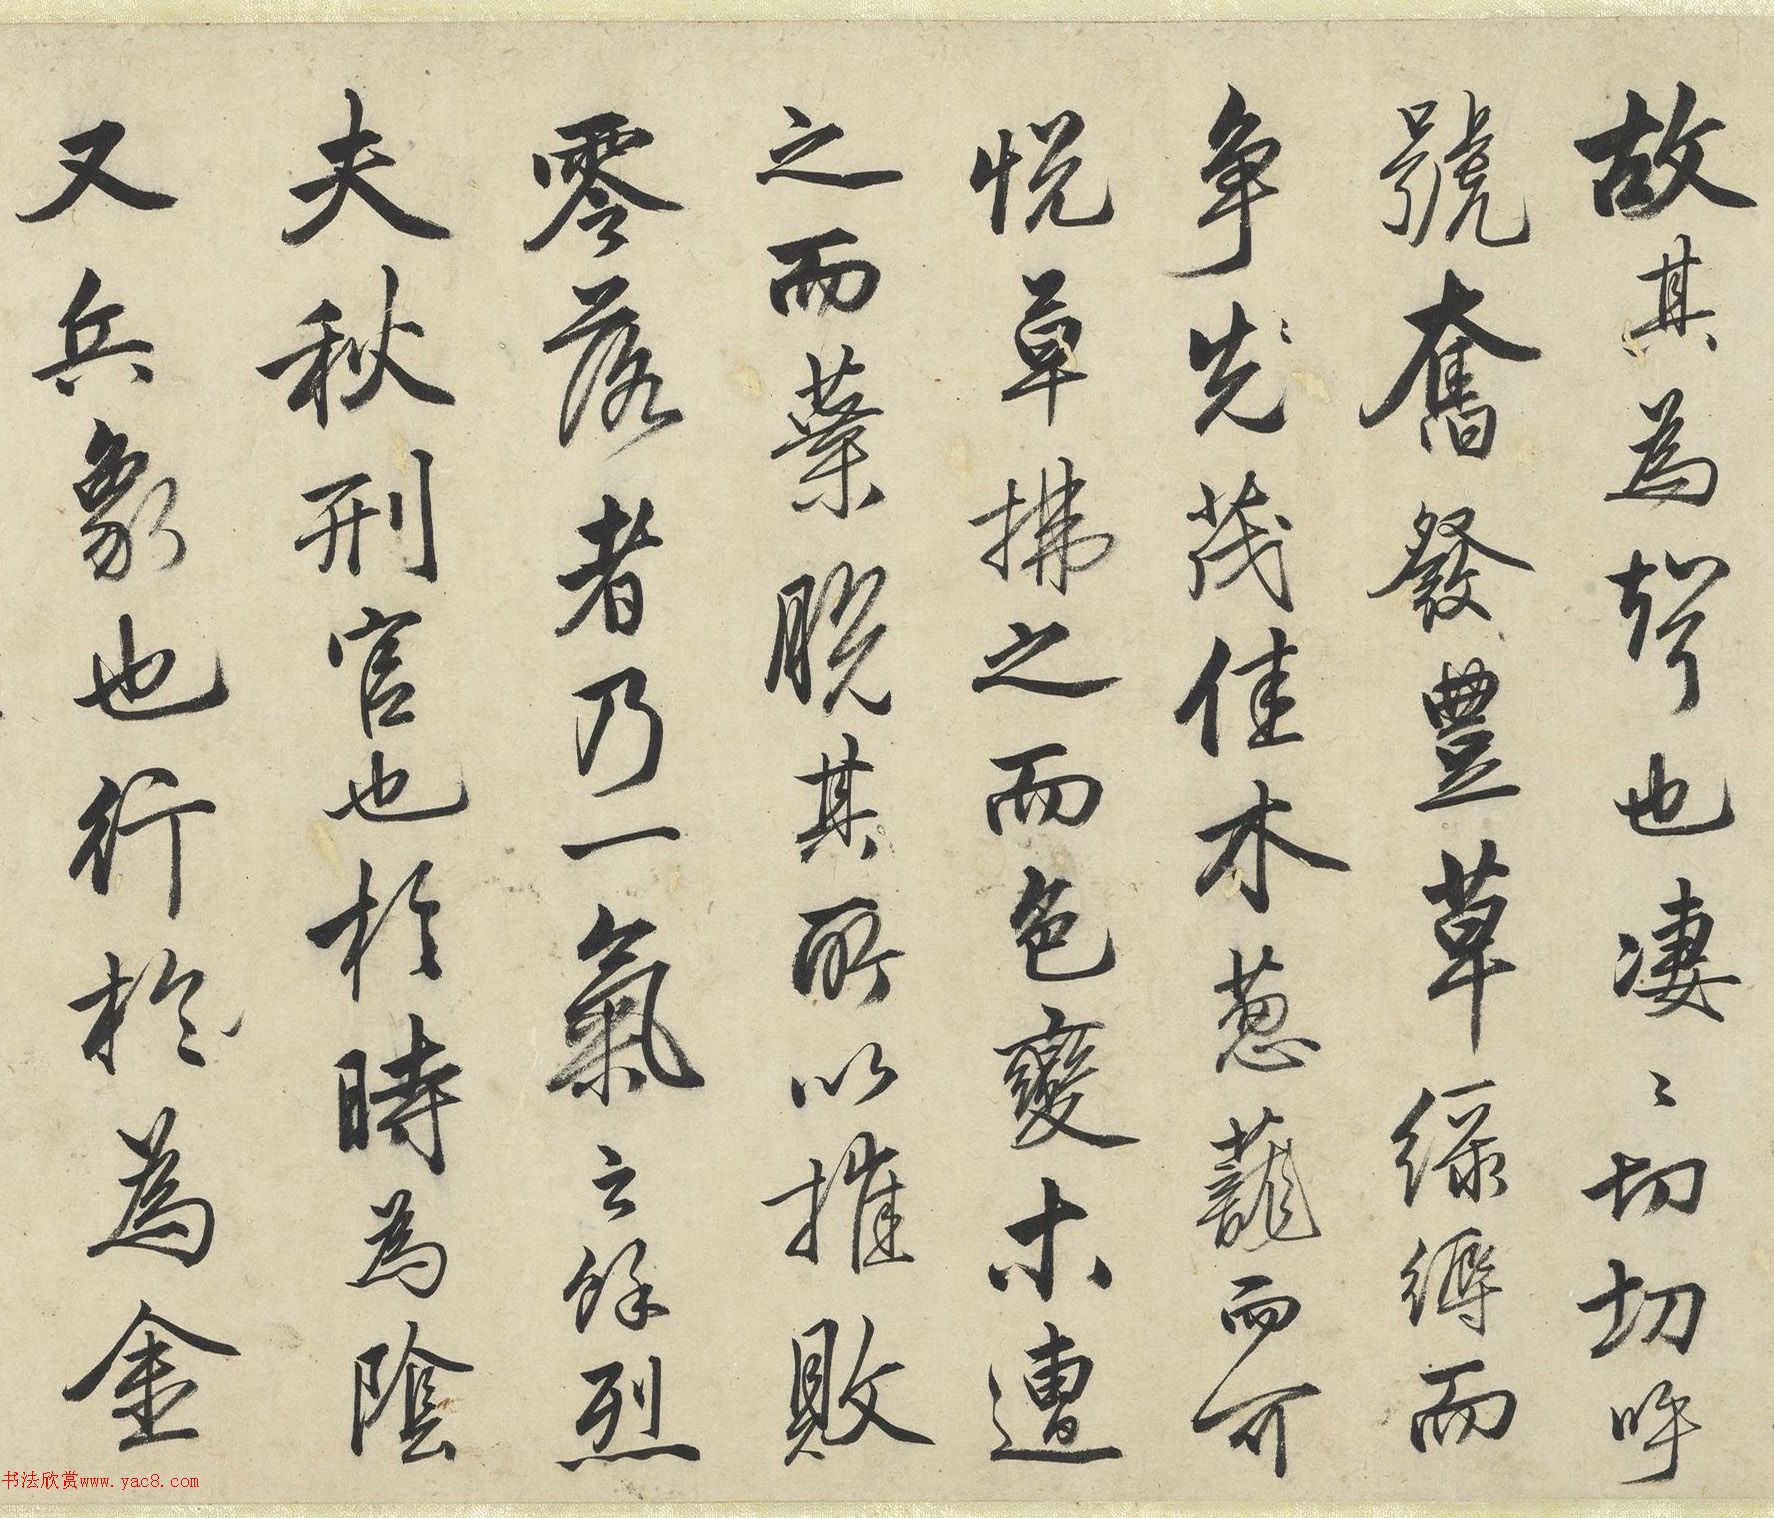 故其為聲也凄〻切切呼
號奮發豐草綠縟而
争先茂佳木葱蘢而可
悅草拂之而色變木遭
之而葉脫其所以摧敗
零落者乃一氣之餘烈
夫秋刑官也於時為陰
又兵象也行於為金
书法欣赏www.yac8.com